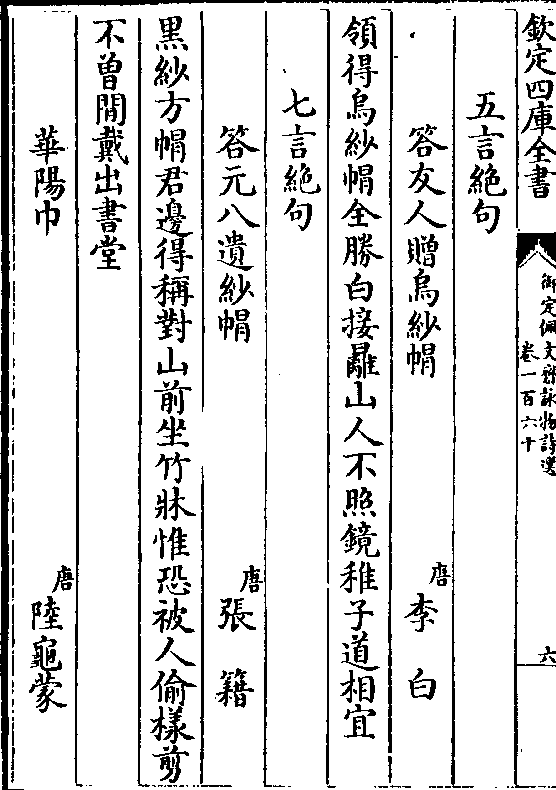 欽定四庫全書
御定佩文齋詠物詩選
卷一百六十
六
五言絶句
答友人贈烏紗帽 唐 李白
領得烏紗帽全勝白接䍦山人不照鏡稚子道相宜
七言絶句
答元八遺紗帽 唐 張籍
黑紗方帽君邊得稱對山前坐竹牀惟恐被人偷樣剪
不曾閒戴出書堂
華陽巾 唐 陸龜蒙